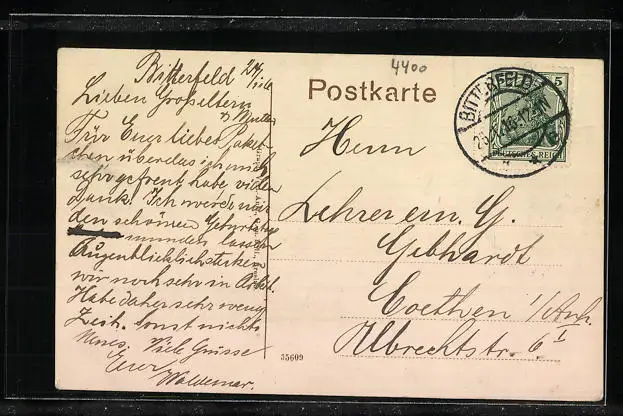 Bitterfeld 24/1.16
4400
Lieben Großeltern
& Mutter
Für Euer liebes Paket-
chen über das ich mich
sehr gefreut habe vielen
Dank. Ich werde mir
den schönen Geburtstags
munden lassen
Augenblicklich stecken
wir noch sehr in Arbt.
Habe daher sehr wenig
Zeit. Sonst nichts
Neues. Viele Grüsse
Euer
Waldemar.
Postkarte
BITTERFELD
5
DEUTSCHES REICH
Herrn
Lehrer em. G.
Gebhardt
Coethen i/Anh.
Albrechtstr. 6 I
35609